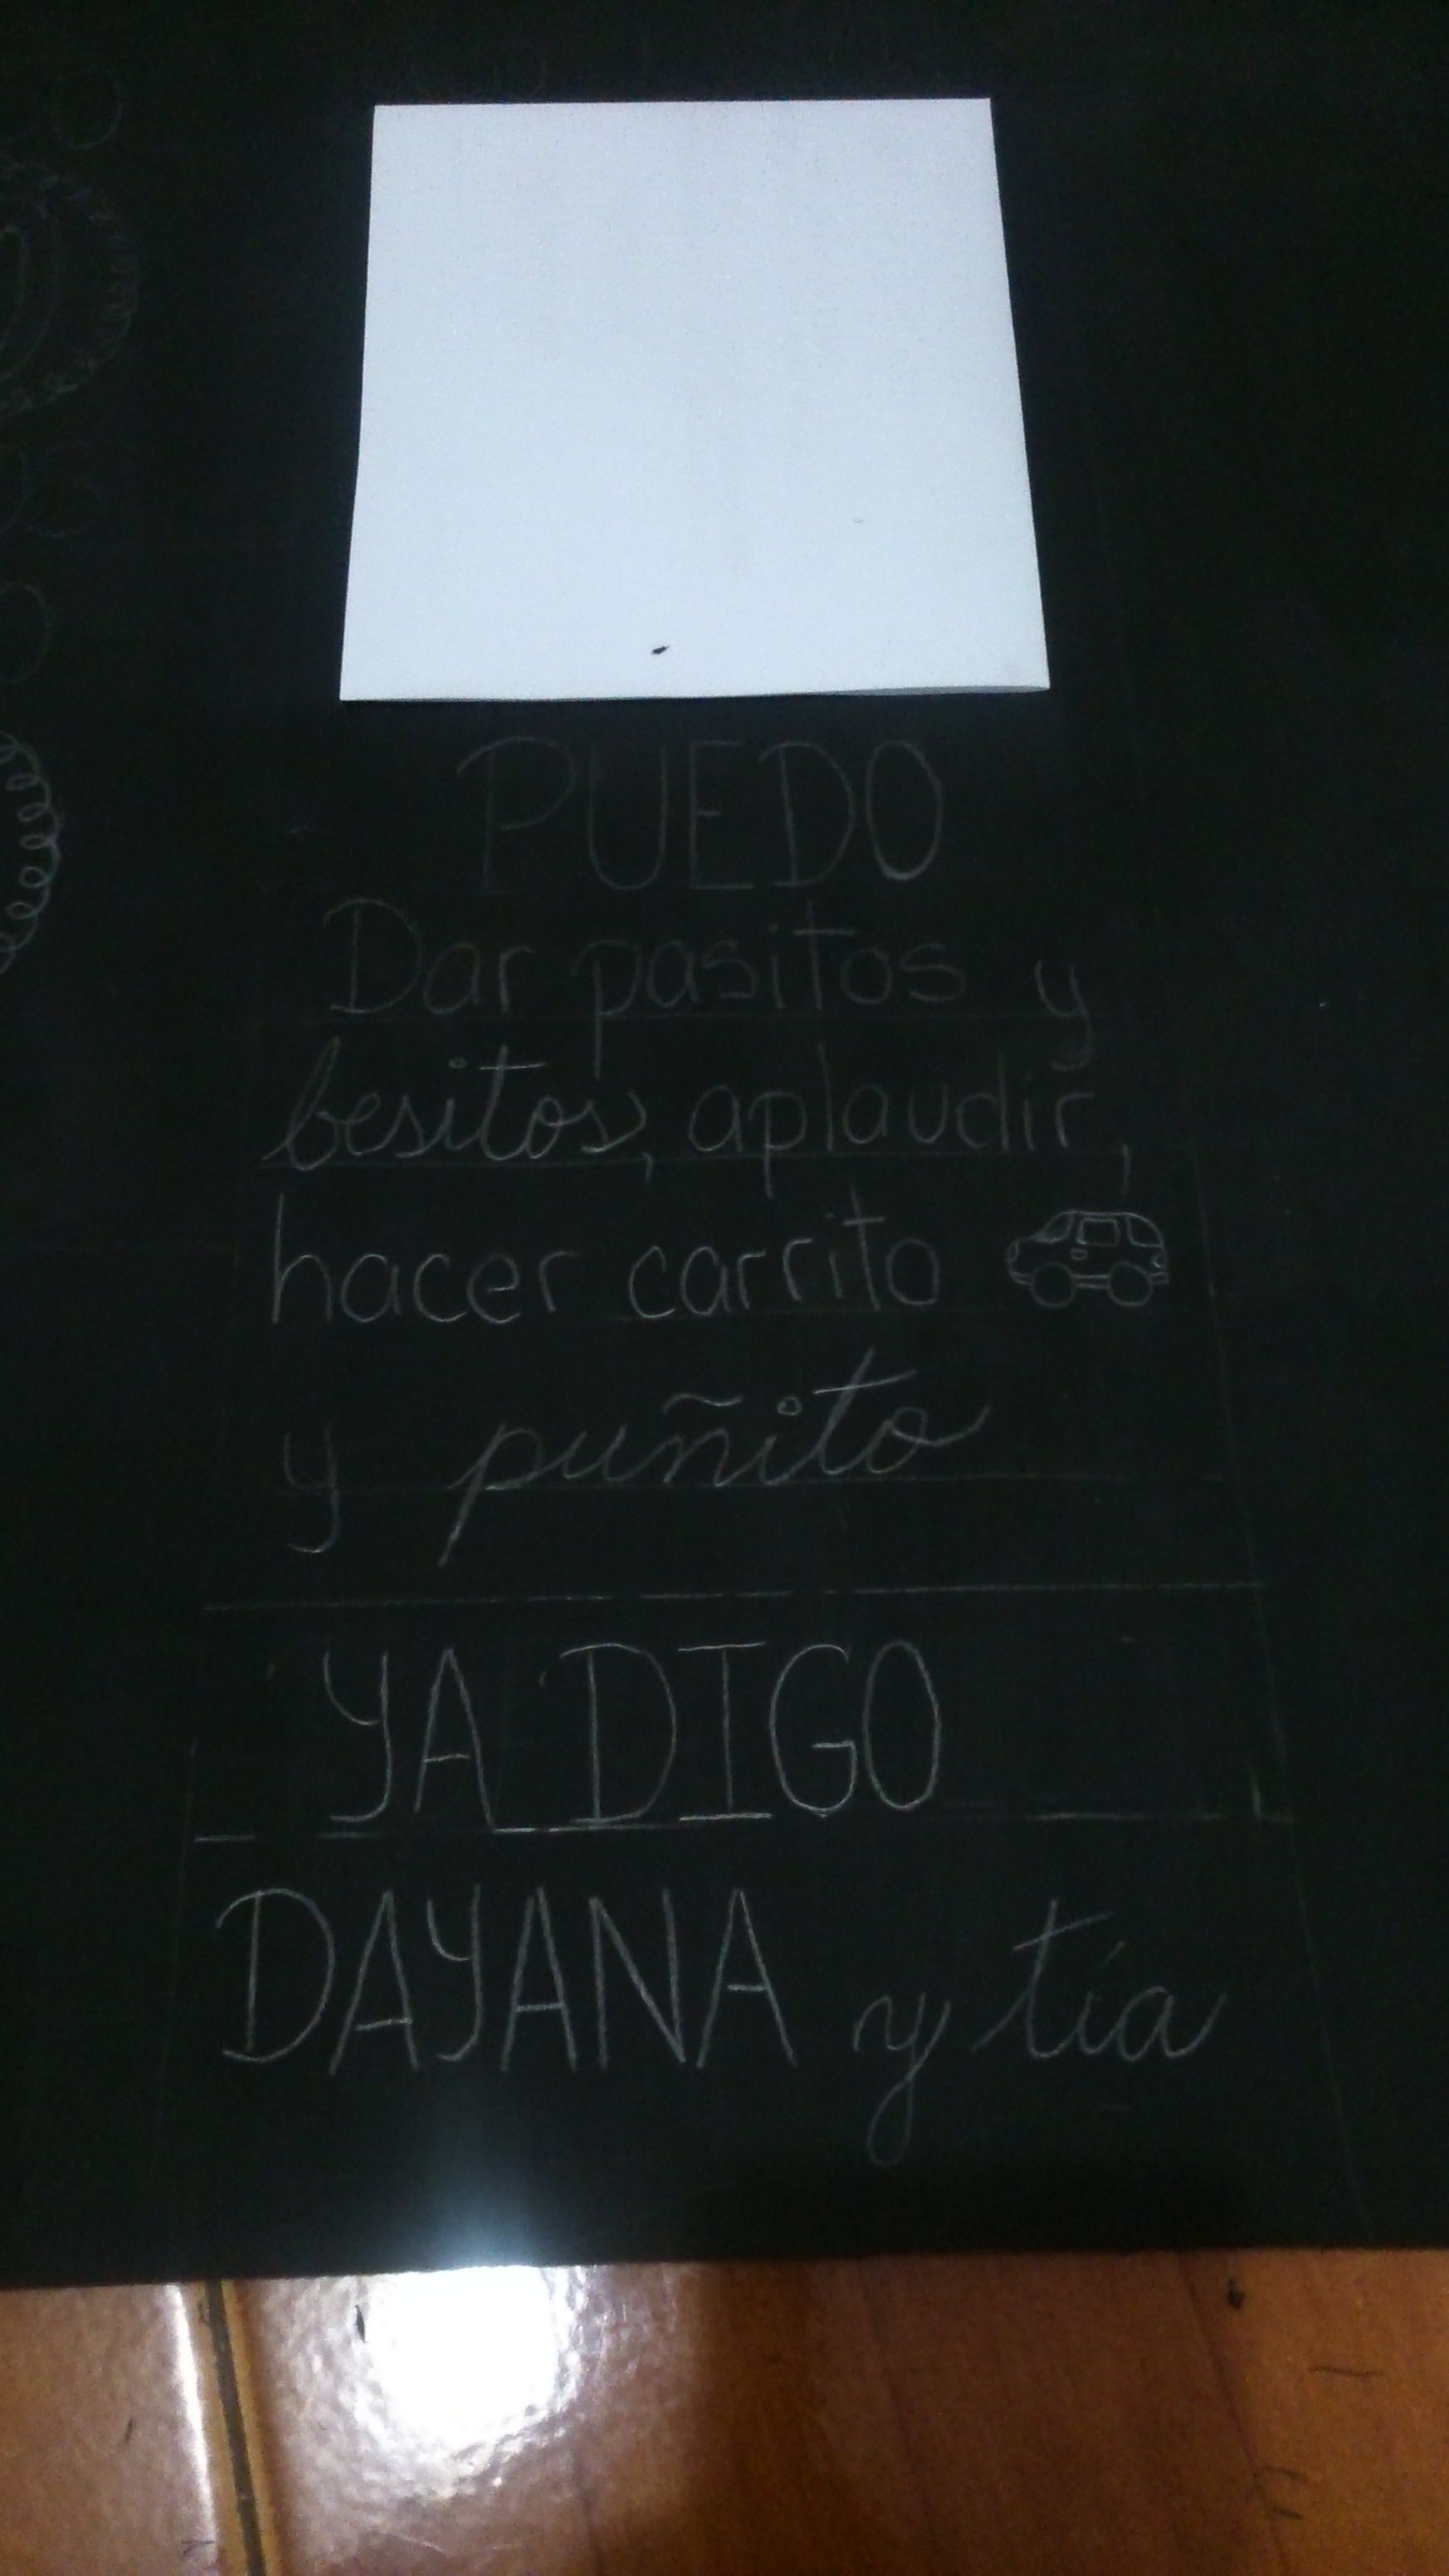 PUEDO
Dar pasitos y
besitos, aplaudir,
hacer carrito
y puñito
YA DIGO
DAYANA y tía